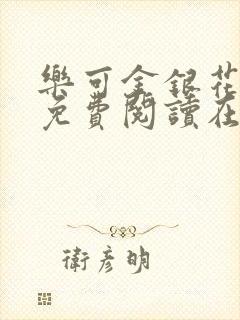 樂可金銀花
免費閱讀在
衛彥明